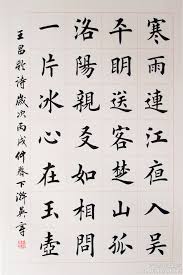 寒雨連江夜入吴
平明送客楚山孤
洛陽親友如相問
一片冰心在玉壺
王昌齡詩歲次丙戌仲春下澣英